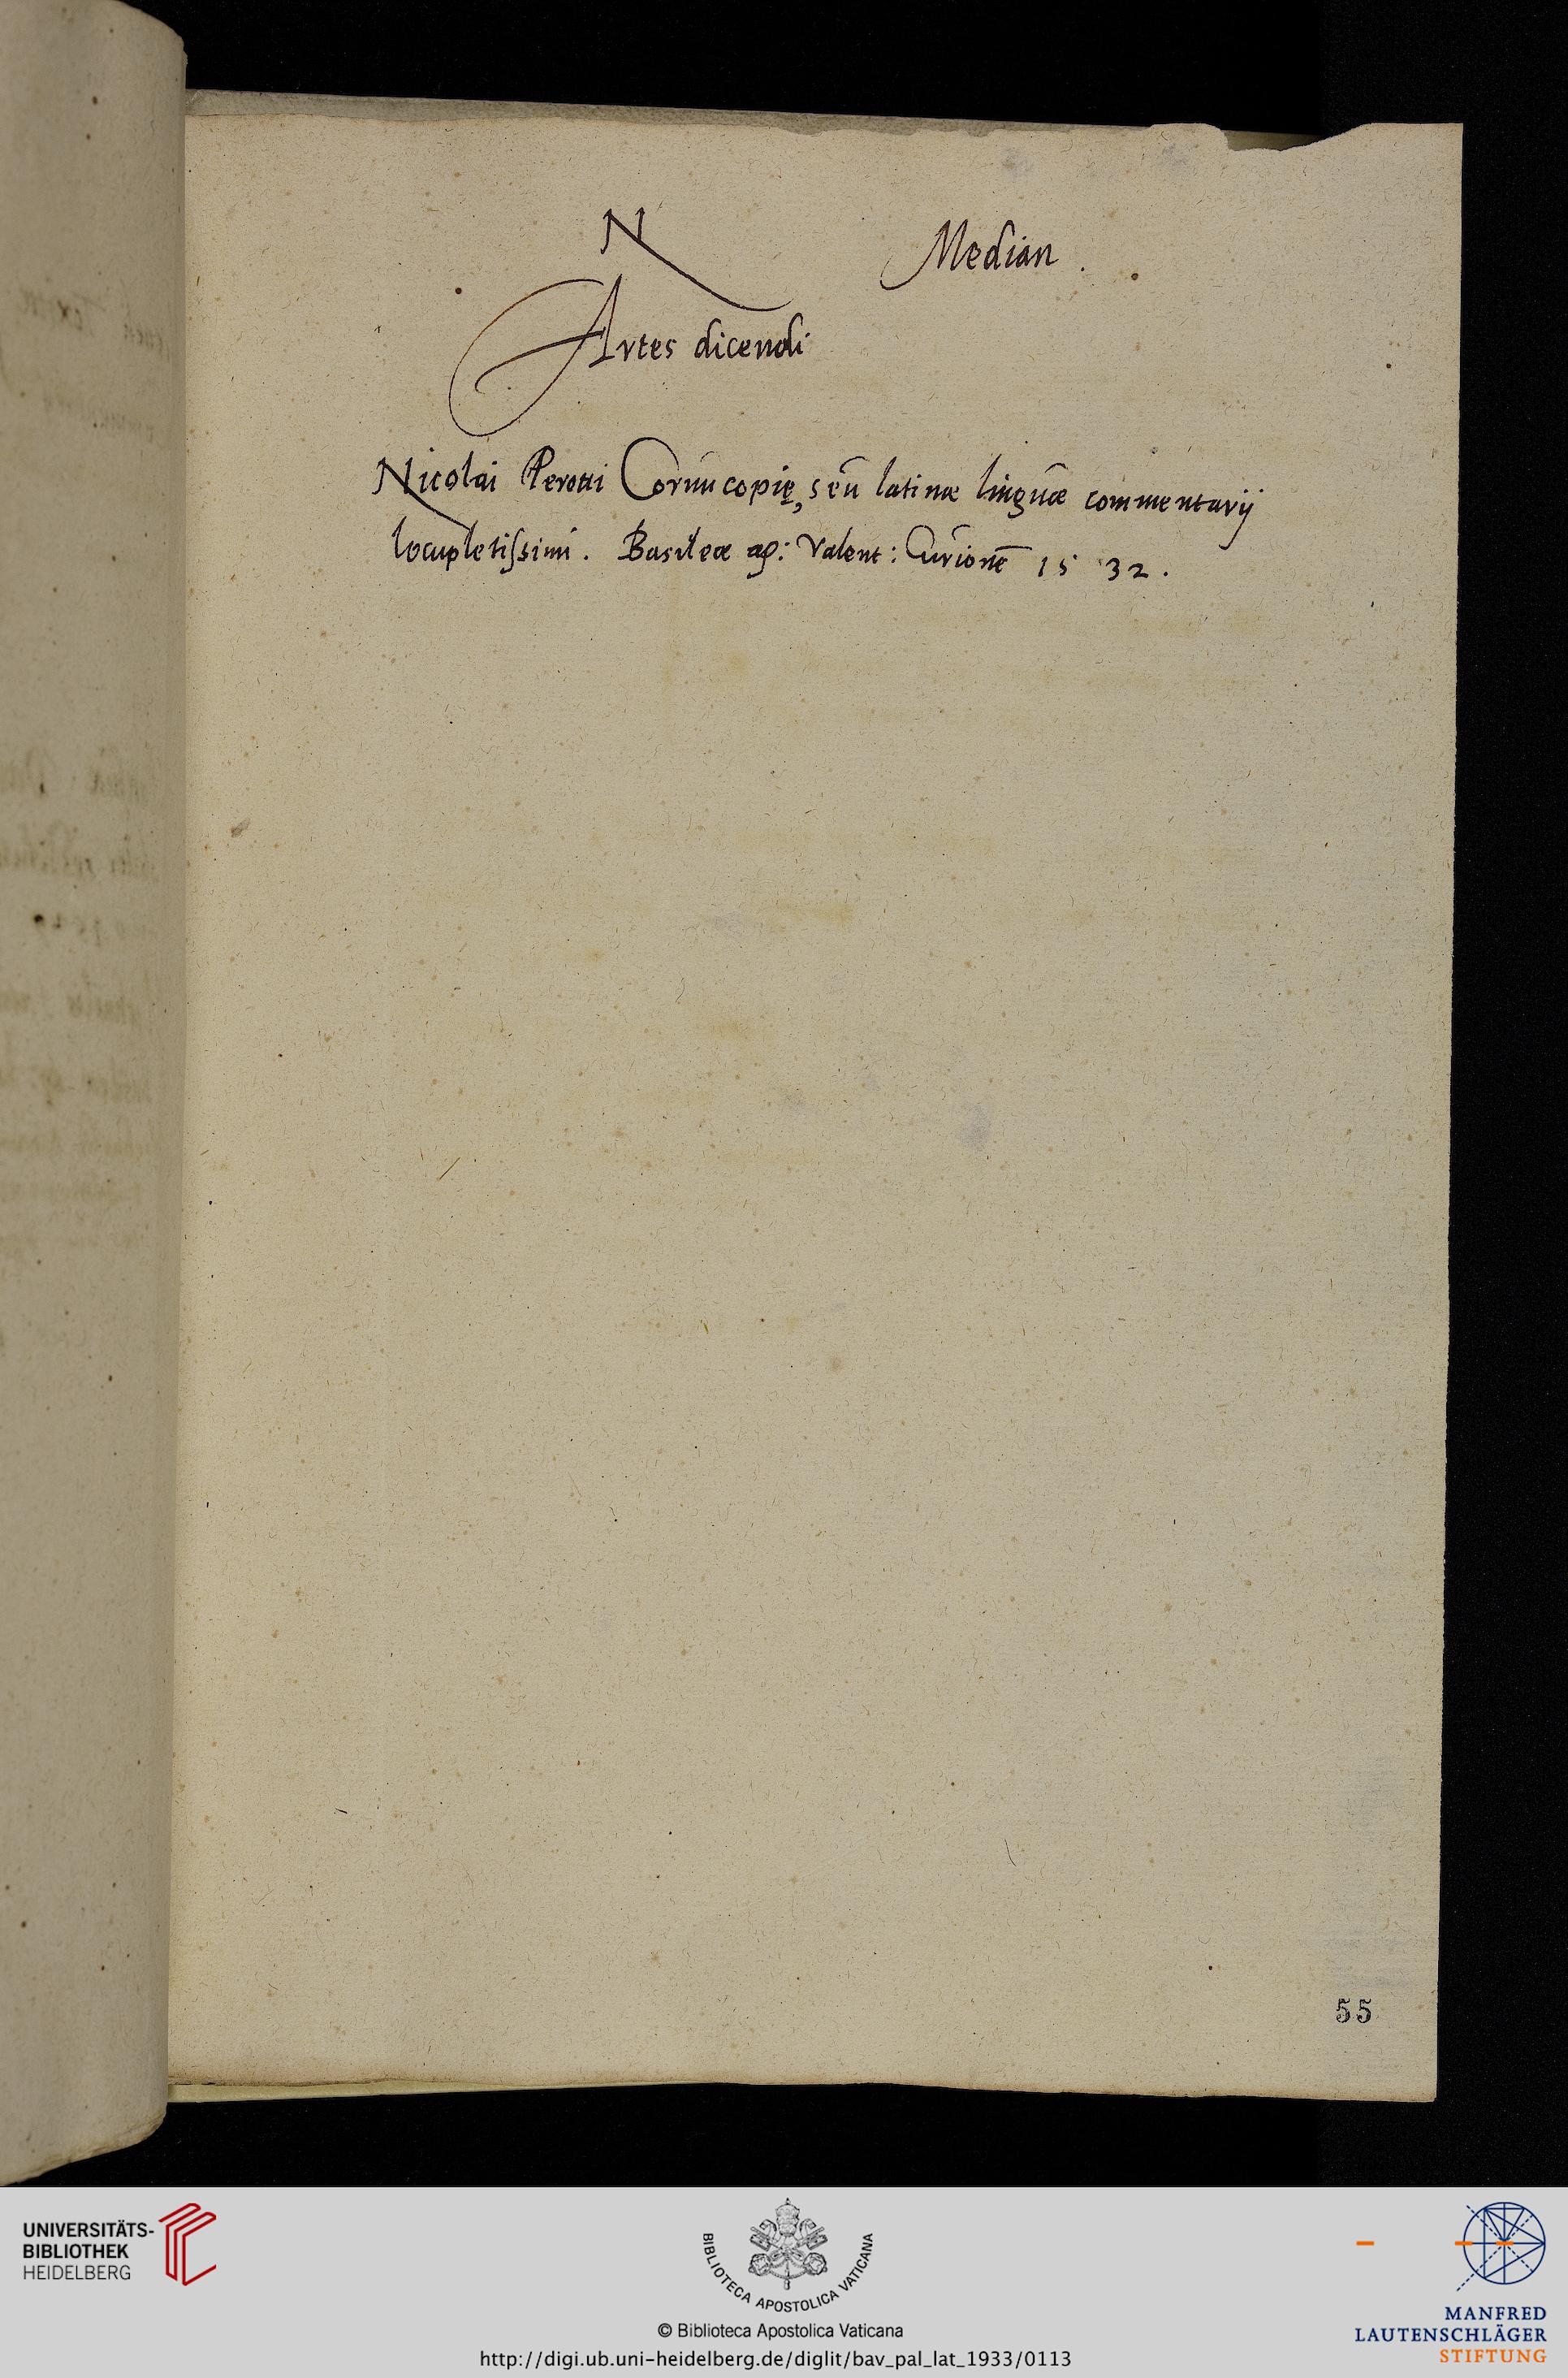 N
Median .
Artes dicendi
Nicolai Perotti Cornucopię, seu latinæ linguæ commentarij
locupletiſsimi . Basileæ ap: Valent: Curionē 15 32 .
55
UNIVERSITÄTS-
BIBLIOTHEK
HEIDELBERG
BIBLIOTECA APOSTOLICA VATICANA
© Biblioteca Apostolica Vaticana
http://digi.ub.uni-heidelberg.de/diglit/bav_pal_lat_1933/0113
MANFRED
LAUTENSCHLÄGER
STIFTUNG